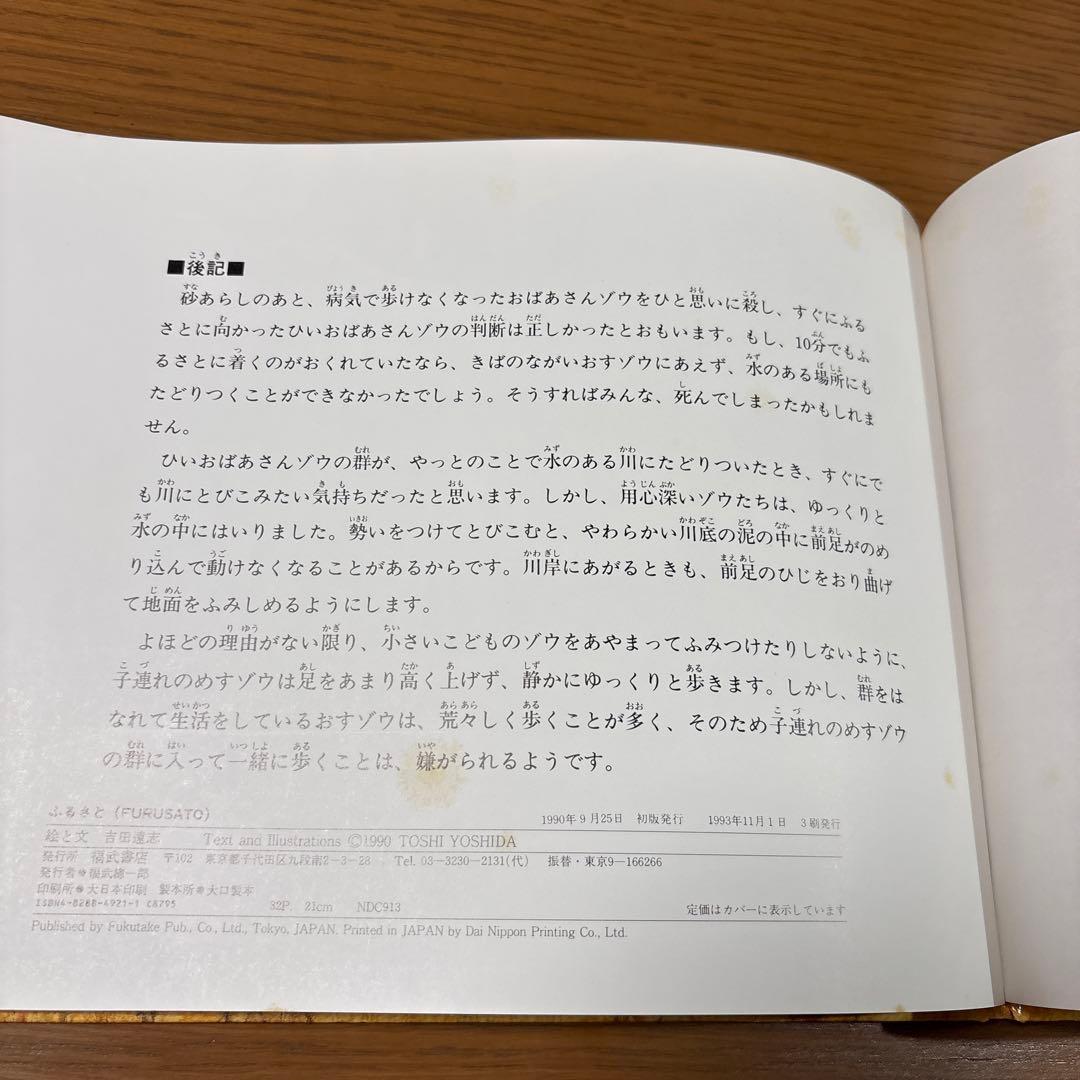 ■後記■
砂あらしのあと、病気で歩けなくなったおばあさんゾウをひと思いに殺し、すぐにふる
さとに向かったひいおばあさんゾウの判断は正しかったとおもいます。もし、10分でもふ
るさとに着くのがおくれていたなら、きばのながいおすゾウにあえず、水のある場所にも
たどりつくことができなかったでしょう。そうすればみんな、死んでしまったかもしれま
せん。
ひいおばあさんゾウの群が、やっとのことで水のある川にたどりついたとき、すぐにで
も川にとびこみたい気持ちだったと思います。しかし、用心深いゾウたちは、ゆっくりと
水の中にはいりました。勢いをつけてとびこむと、やわらかい川底の泥の中に前足がのめ
り込んで動けなくなることがあるからです。川岸にあがるときも、前足のひじをおり曲げ
て地面をふみしめるようにします。
よほどの理由がない限り、小さいこどものゾウをあやまってふみつけたりしないように、
子連れのめすゾウは足をあまり高く上げず、静かにゆっくりと歩きます。しかし、群をは
なれて生活をしているおすゾウは、荒々しく歩くことが多く、そのため子連れのめすゾウ
の群に入って一緒に歩くことは、嫌がられるようです。
ふるさと (FURUSATO)
1990年9月25日 初版発行 1993年11月1日 3刷発行
絵と文 吉田遠志 Text and Illustrations ©1990 TOSHI YOSHIDA
発行所 福武書店 〒102 東京都千代田区九段南2-3-28 Tel. 03-3230-2131(代) 振替・東京9-166266
発行者 福武總一郎
印刷所 大日本印刷 製本所 大口製本
ISBN4-8288-4921-1 C8795 32P. 21cm NDC913 定価はカバーに表示しています
Published by Fukutake Pub., Co., Ltd., Tokyo, JAPAN. Printed in JAPAN by Dai Nippon Printing Co., Ltd.